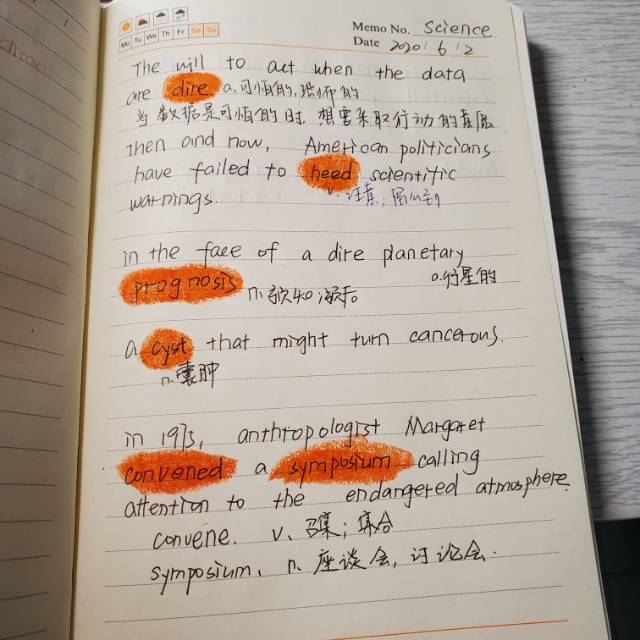 Mo Tu We Th Fr Sa Su
Memo No. Science
Date 2020/6/2
The will to act when the data
are dire a.可怕的,恐怖的
当数据是可怕的时,想要采取行动的意愿
then and now, American politicians
have failed to heed scientific
warnings.
v.注意;留心到
in the face of a dire planetary
prognosis n.预知;预后
a.行星的
a cyst that might turn cancerous.
n.囊肿
in 1975, anthropologist Margaret
convened a symposium calling
attention to the endangered atmosphere.
convene. v. 召集;集合
symposium. n. 座谈会,讨论会.